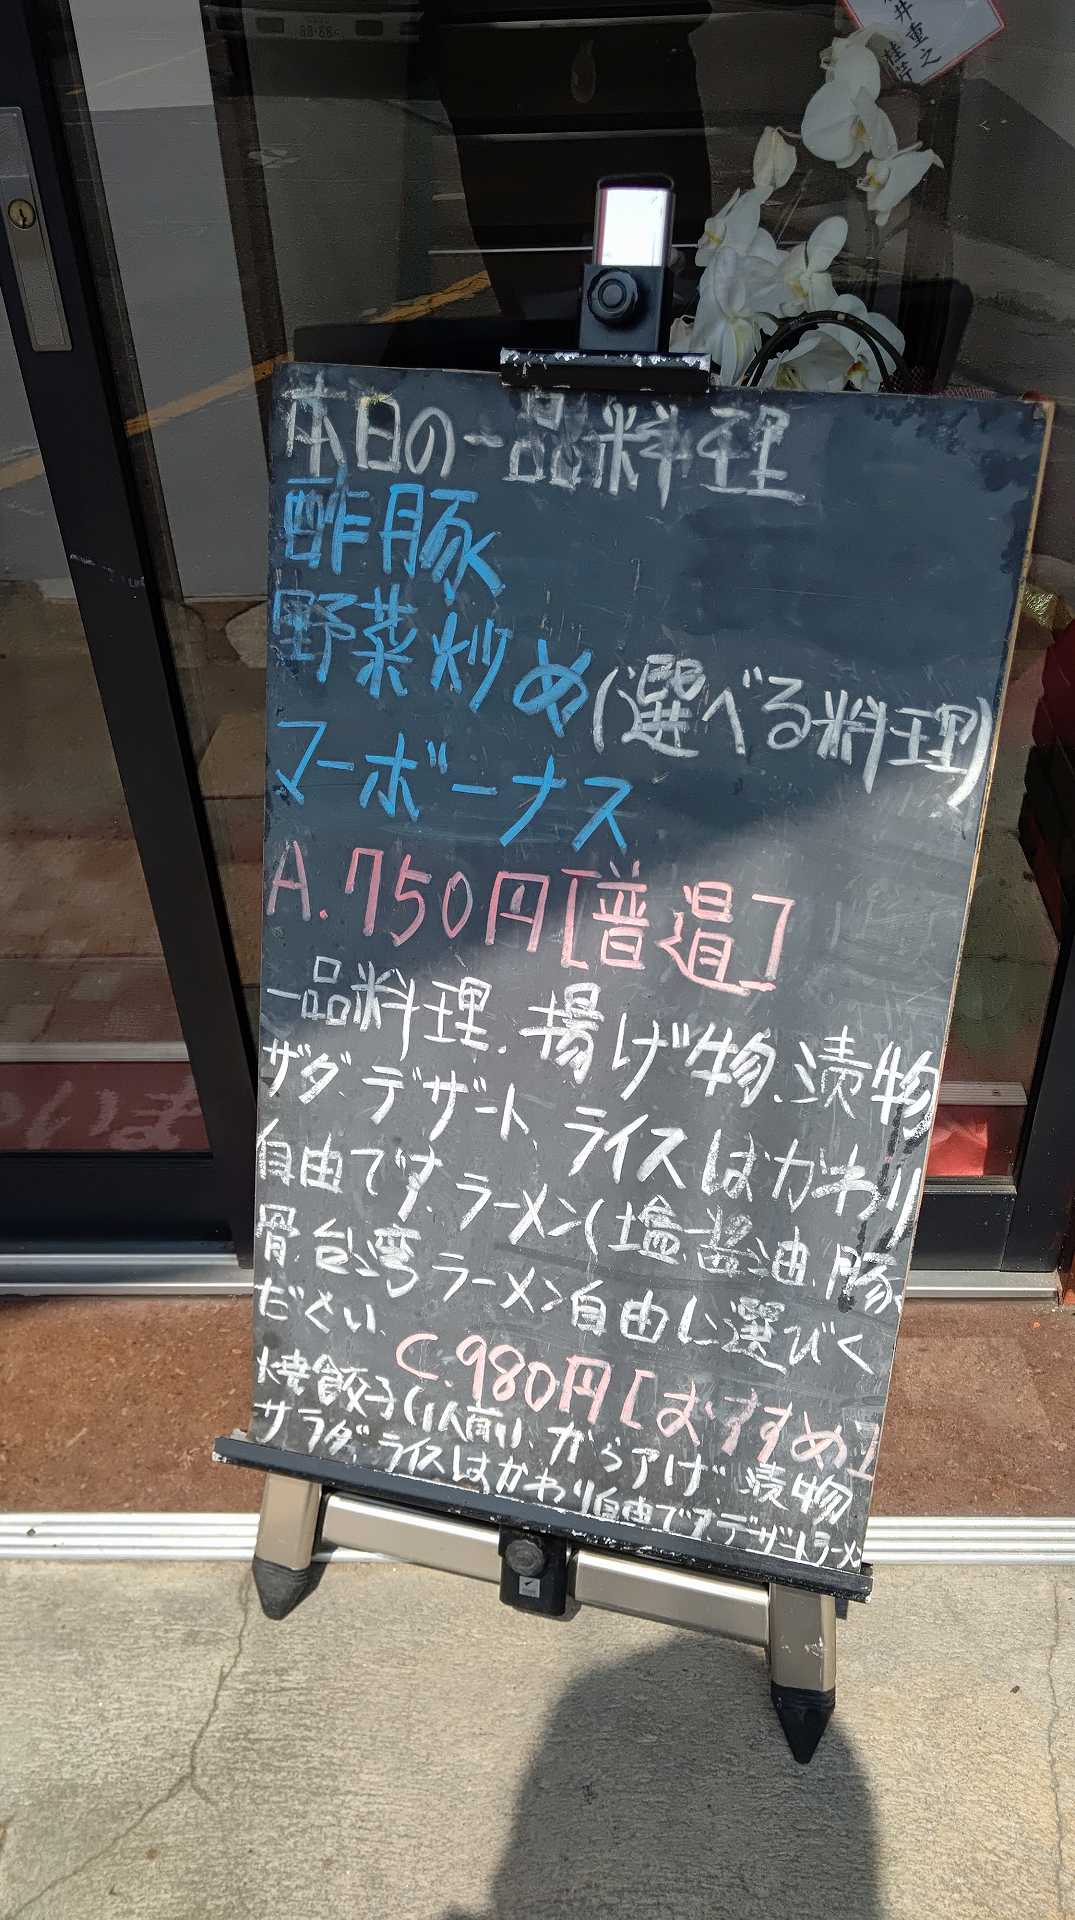 井重之
本日の一品料理
酢豚
野菜炒め(選べる料理)
マーボーナス
A.750円[普通]
一品料理.揚げ物.漬物
ザダ.デザート.ライスはがわり
自由です.ラーメン(塩.醤油.豚
骨.台湾ラーメン自由に選びく
ださい.
C.980円[おすすめ]
焼餃子(1人前).からアげ.漬物
サラダ.ライスはかわり自由です.デザートラーメン